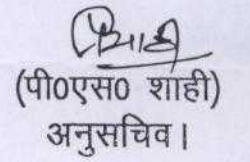 (पी0एस0 शाही)
अनुसचिव।